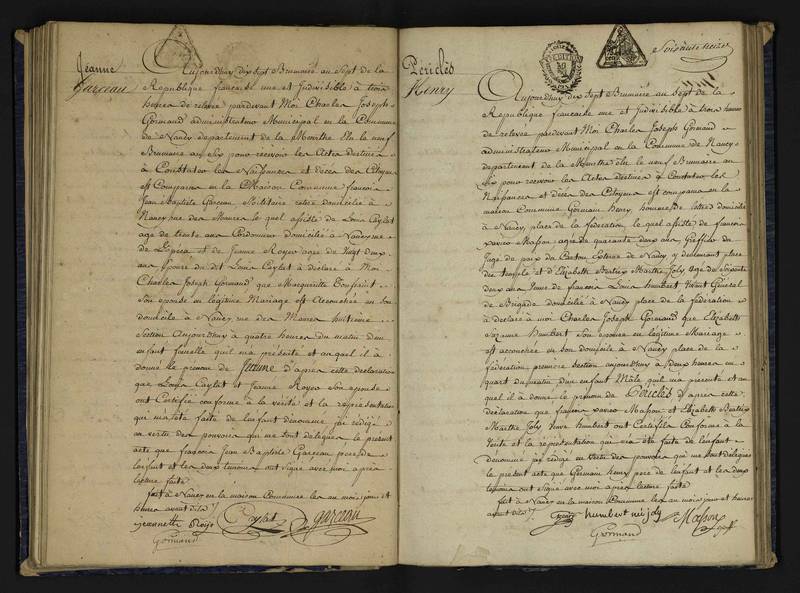 Jeanne
Garceau
Aujourdhuy dix Sept Brumaire an Sept de la
République française une et Indivisible à trois
heures de relevée pardevant Moi Charles Joseph
Gormand administrateur Municipal en la Commune
de Nancy departement de la Meurthe Elu le neuf
Brumaire an Six pour recevoir les Actes destinés
à Constater les Naissances et décès des Citoyens
est Comparu en la Maison Commune françois
Jean Baptiste Garceau Militaire retiré domicilié à
Nancy rue des Maures le quel assisté de Louis Caylet
age de trente ans Cordonnier domicilié à Nancy rue
de et de Jeanne Royer agée de Vingt deux
ans épouse du dit Louis Caylet à déclaré à Moi
Charles Joseph Gormand que Margueritte
Son épouse en légitime Mariage est Accouchée en son
domicile à Nancy rue des Maures huitieme
Section Aujourdhuy à quatre heures du matin dun
enfant femelle quil ma présenté et auquel il à
donné le prenom de Jeanne d'après cette déclaration
que Louis Caylet et Jeanne Royer Son épouse
ont Certifié conforme à la vérité et la représentation
qui ma été faite de lenfant dénommé jai rédigé
en vertu des pouvoirs qui me sont délégués le présent
acte que françois Jean Baptiste Garceau pere de
lenfant et les deux témoins ont signé avec moi après
lecture faite
fait à Nancy en la maison Commune les an mois jour et
heures avant dits /.
jeannette Caylet garceau
Gormand
Periclès
Henry
Soixante treize
Aujourdhuy dix Sept Brumaire an Sept de la
République française une et Indivisible à trois heures
de relevée pardevant Moi Charles Joseph Gormand
administrateur Municipal en la Commune de Nancy
departement de la Meurthe élu le neuf Brumaire an
Six pour recevoir les Actes destinés à Constater les
Naissances et décès des Citoyens est comparu en la
maison Commune Germain Henry, homme de lettres domicilié
à Nancy, place de la fédération, le quel assisté de françois
Masson agé de quarante deux ans Greffier du
Juge de paix du Canton Extera de Nancy y demeurant place
du temple et d'Elizabeth Beatrix Marthe Joly age de Soixante
deux ans Veuve de françois Louis humbert Vivant Général
de Brigade domiciliée à Nancy place de la fédération
à déclaré à moi Charles Joseph Gormand que Elizabeth
Suzanne Humbert Son épouse en légitime Mariage
est accouchée en son domicile à Nancy place de la
fédération premiere Section aujourdhuy à deux heures un
quart du matin dun enfant Mâle quil ma présenté et au
quel il à donné le prenom de Periclès d'après cette
déclaration que françois Masson et Elizabeth Beatrix
Marthe Joly Veuve humbert ont Certifié Conforme à la
Verité et la représentation qui ma été faite de lenfant
dénommé jai rédigé en Vertu des pouvoirs qui me sont délégués
le présent acte que Germain henry pere de lenfant et les deux
témoins ont signé avec moi après lecture faite
fait à Nancy en la maison Commune les an mois jour et heures
avant dits /.
henry humbert née joly Masson
greff
Gormand